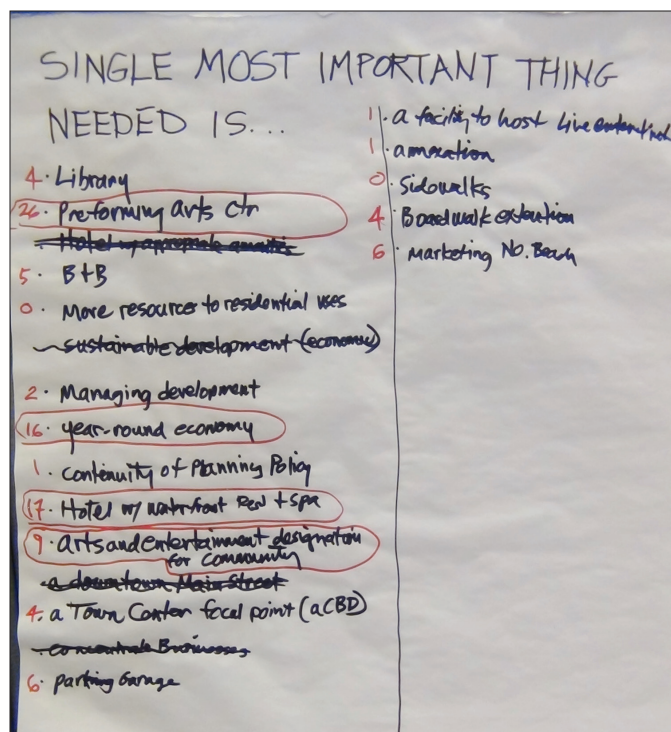 SINGLE MOST IMPORTANT THING
NEEDED IS...
4. Library
26. Preforming arts ctr
Hotel w/ appropriate amenities
5. B+B
0. More resources to residential uses
sustainable development (economic)
2. Managing development
16. year-round economy
1. continuity of Planning Policy
17. Hotel w/ waterfront Rest + spa
9. arts and entertainment designation
for community
a downtown Main Street
4. a Town Center focal point (a CBD)
concentrate Businesses
6. parking Garage
1. a facility to host Live
1. annexation
0. Sidewalks
4. Boardwalk extention
6. Marketing No. Beach